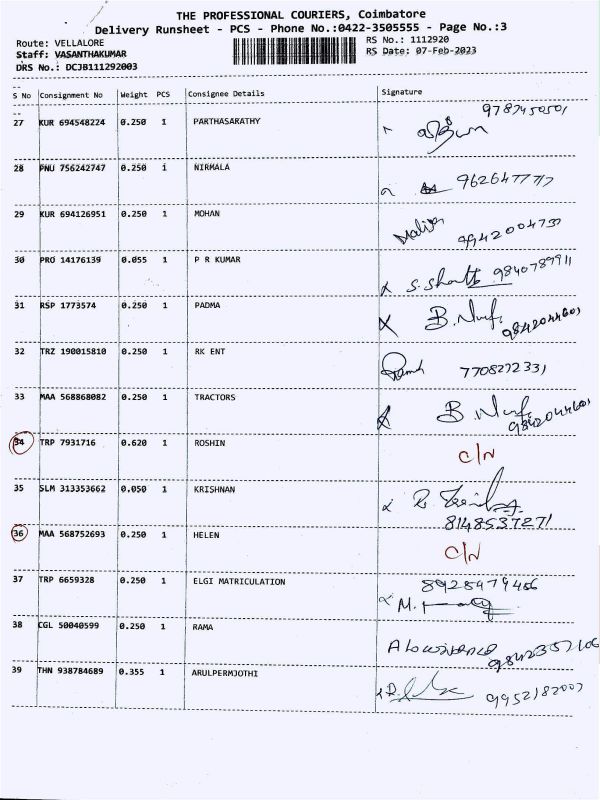 THE PROFESSIONAL COURIERS, Coimbatore
Delivery Runsheet - PCS - Phone No.:0422-3505555 - Page No.:3
Route: VELLALORE RS No.: 1112920
Staff: VASANTHAKUMAR RS Date: 07-Feb-2023
DRS No.: DCJB111292003
S No Consignment No Weight PCS Consignee Details Signature
27 KUR 694548224 0.250 1 PARTHASARATHY
28 PNU 756242747 0.250 1 NIRMALA
29 KUR 694126951 0.250 1 MOHAN
30 PRO 14176139 0.055 1 P R KUMAR 9840789911
31 RSP 1773574 0.250 1 PADMA 9842044601
32 TRZ 190015810 0.250 1 RK ENT 7708272331
33 MAA 568868082 0.250 1 TRACTORS 9842044601
34 TRP 7931716 0.620 1 ROSHIN C/N
35 SLM 313353662 0.050 1 KRISHNAN
8148537271
36 MAA 568752693 0.250 1 HELEN C/N
37 TRP 6659328 0.250 1 ELGI MATRICULATION 8925979456
38 CGL 50040599 0.250 1 RAMA
39 THN 938784689 0.355 1 ARULPERMJOTHI 9952182007